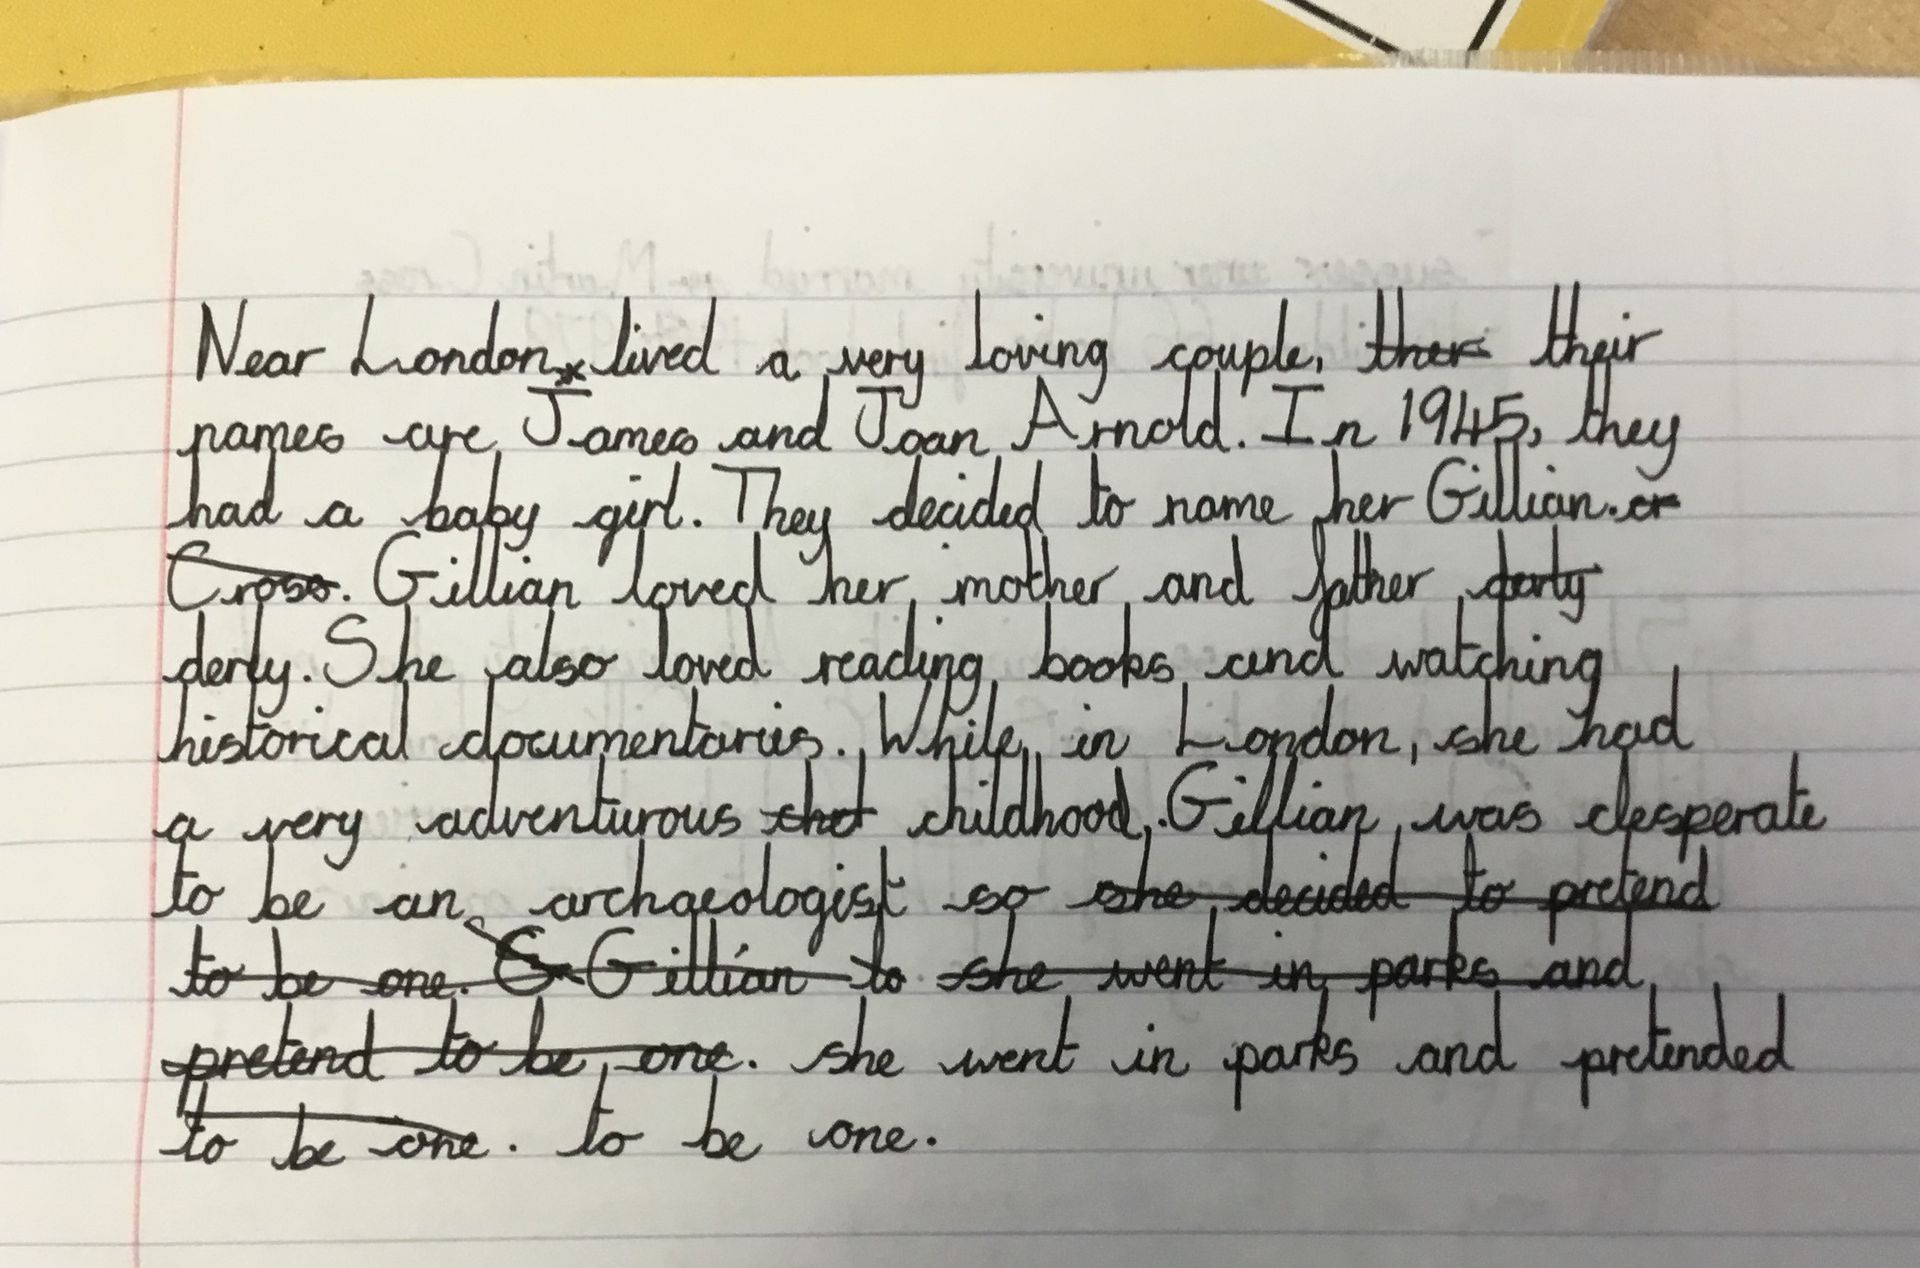 Near London * lived a very loving couple, ther their
names are James and Joan Arnold. In 1945, they
had a baby girl. They decided to name her Gillian. cr
Cross. Gillian loved her mother and father darly
derly. She also loved reading books and watching
historical documentaries. While in London, she had
a very adventurous chot childhood. Gillian was desperate
to be an archaeologist so she decided to pretend
to be one. G Gillian to she went in parks and
pretend to be one. she went in parks and pretended
to be one. to be one.